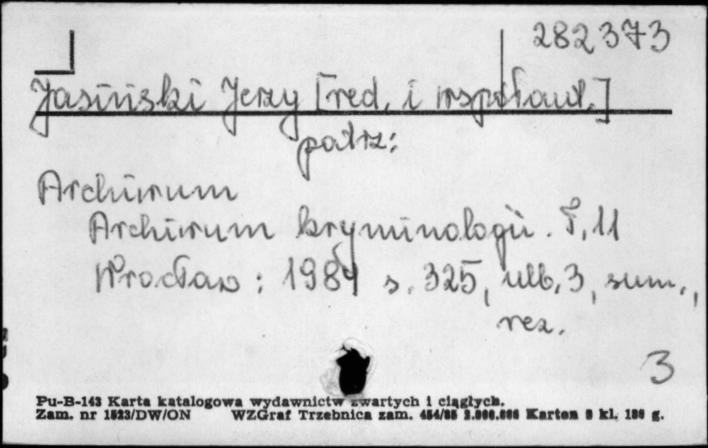 282373
Jasiński Jerzy [red. i współaut.]
patrz:
Archiwum
Archiwum kryminologii. T. 11
Wrocław : 1984 s. 325, ulb. 3, sum.,
rez.
3
Pu-B-143 Karta katalogowa wydawnictw zwartych i ciągłych.
Zam. nr 1523/DW/ON WZGraf Trzebnica zam. Karton kl. g.